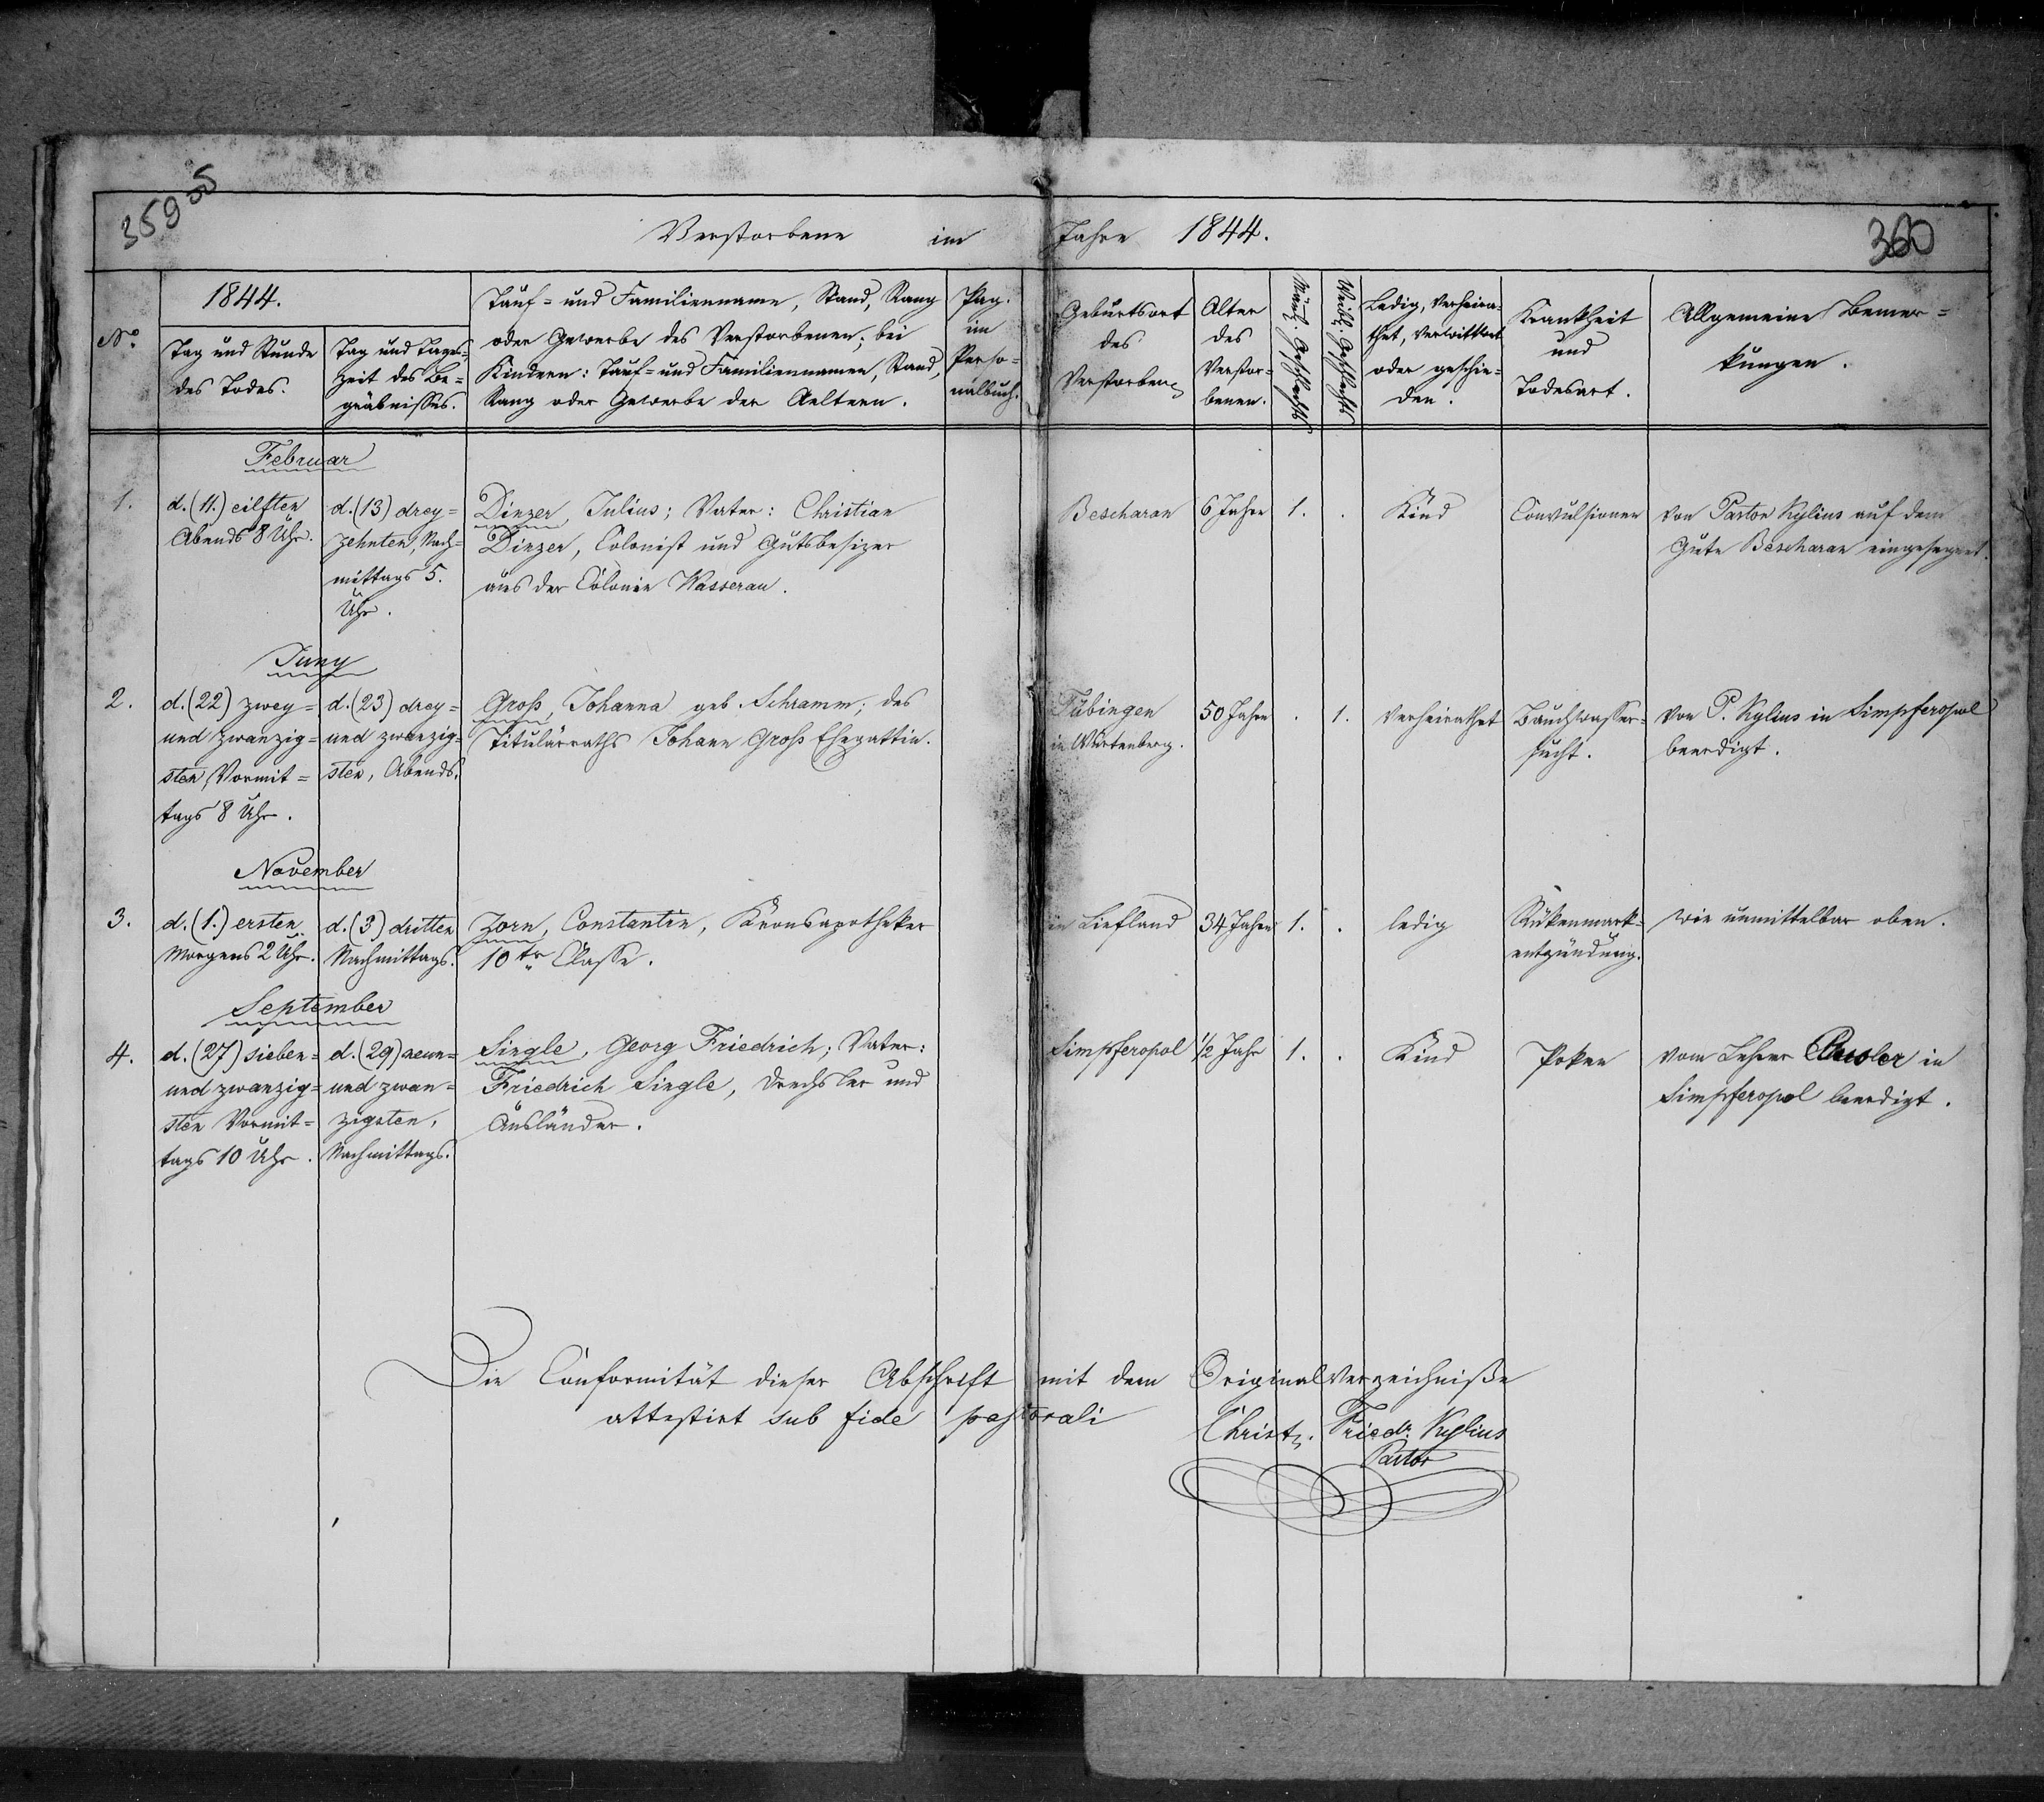 359
360
Verstorbene im Jahre 1844.
No.
1844.
Tag und Stunde
des Todes.
Tag und Tages-
zeit des Be-
gräbnisses.
Tauf- und Familienname, Stand, Rang
oder Gewerbe des Verstorbenen; bei
Kindern: Tauf- und Familiennamen, Stand,
Rang oder Gewerbe der Aeltern.
Pag.
im
Perso-
nalbuch.
Geburtsort
des
Verstorbenen
Alter
des
Verstor-
benen.
Männl. Geschlechts
Weibl. Geschlechts
Ledig, verheira-
thet, verwittwet
oder geschie-
den.
Krankheit
und
Todesart.
Allgemeine Bemer-
kungen.
Februar
1.
d. (11.) eilften
Abends 8 Uhr.
d. (13) drey-
zehnten, Nach-
mittags 5.
Uhr.
Dinzer, Julius; Vater: Christian
Dinzer, Colonist und Gutsbesizer
aus der Colonie Wasserau.
Bescharan
6 Jahre
1.
.
Kind
Convulsionen
von Pastor Kylius auf dem
Gute Bescharan eingesegnet.
Juny
2.
d. (22) zwey-
und zwanzig-
sten Vormit-
tags 8 Uhr.
d. (23) drey-
und zwanzig-
sten, Abends.
Groß, Johanna geb. Schramm; des
Titulärraths Johann Groß Ehegattin.
Tübingen
in Würtenberg.
50 Jahre
.
1.
verheirathet
Bauchwasser-
sucht.
von P. Kylius in Simpferopol
beerdigt.
November
3.
d. (1.) ersten
Morgens 2 Uhr.
d. (3) dritten
Nachmittags.
Zorn, Constantin, Kronsapotheker
10ter Classe.
in Liefland
34 Jahre
1.
.
ledig
Rükenmark-
entzündung.
wie unmittelbar oben.
September
4.
d. (27) sieben-
und zwanzig-
sten Vormit-
tags 10 Uhr.
d. (29) neun-
und zwan-
zigsten,
Nachmittags.
Single, Georg Friedrich; Vater:
Friedrich Single, Drechsler und
Ausländer.
Simpferopol
1/2 Jahr
1.
.
Kind
Poken
vom Lehrer in
Simpferopol beerdigt.
Die Conformität dieser Abschrift mit dem Originalverzeichniße
attestirt sub fide pastorali
Christ. Friedr. Kylius
Pastor